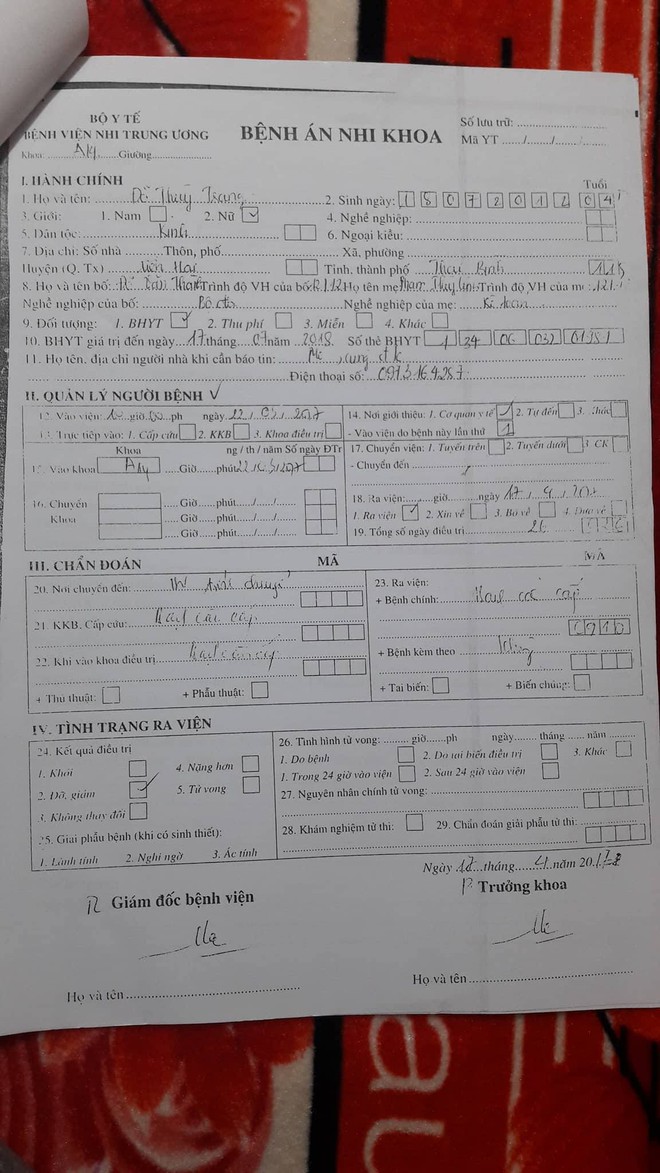 BỘ Y TẾ
BỆNH VIỆN NHI TRUNG ƯƠNG
Khoa: A14 Giường
BỆNH ÁN NHI KHOA
Số lưu trữ:
Mã YT ...../...../...../.....
I. HÀNH CHÍNH
Tuổi
1. Họ và tên: Đỗ Thùy Trang 2. Sinh ngày: 1 5 0 7 2 0 1 2 0 4
3. Giới: 1. Nam 2. Nữ 4. Nghề nghiệp:
5. Dân tộc: Kinh 6. Ngoại kiều:
7. Địa chỉ: Số nhà Thôn, phố Xã, phường
Huyện (Q. Tx) Tiền Hải Tỉnh, thành phố Thái Bình
8. Họ và tên bố: Đỗ Trình độ VH của bố: 12/12 Họ tên mẹ Trình độ VH của mẹ: 12/
Nghề nghiệp của bố: Nghề nghiệp của mẹ: Kế toán
9. Đối tượng: 1. BHYT 2. Thu phí 3. Miễn 4. Khác
10. BHYT giá trị đến ngày 17 tháng 07 năm 2018 Số thẻ BHYT 1 34 06 032
11. Họ tên, địa chỉ người nhà khi cần báo tin: Mẹ
Điện thoại số:
II. QUẢN LÝ NGƯỜI BỆNH
12. Vào viện: giờ ph ngày 22/03/2017
13. Trực tiếp vào: 1. Cấp cứu 2. KKB 3. Khoa điều trị
14. Nơi giới thiệu: 1. Cơ quan y tế 2. Tự đến 3. Khác
- Vào viện do bệnh này lần thứ 1
Khoa ng / th / năm Số ngày ĐTr
15. Vào khoa Giờ phút
16. Chuyển Khoa
Giờ phút ..../..../....
Giờ phút ..../..../....
Giờ phút ..../..../....
17. Chuyển viện: 1. Tuyến trên 2. Tuyến dưới 3. CK
- Chuyển đến
18. Ra viện: giờ ngày 17/4/
1. Ra viện 2. Xin về 3. Bỏ về 4. Đưa về
19. Tổng số ngày điều trị 26
III. CHẨN ĐOÁN
MÃ
MÃ
20. Nơi chuyển đến:
21. KKB, Cấp cứu:
22. Khi vào khoa điều trị
+ Thủ thuật: + Phẫu thuật:
23. Ra viện:
+ Bệnh chính:
+ Bệnh kèm theo
+ Tai biến: + Biến chứng:
IV. TÌNH TRẠNG RA VIỆN
24. Kết quả điều trị
1. Khỏi 4. Nặng hơn
2. Đỡ, giảm 5. Tử vong
3. Không thay đổi
25. Giải phẫu bệnh (khi có sinh thiết):
1. Lành tính 2. Nghi ngờ 3. Ác tính
26. Tình hình tử vong: giờ ph ngày tháng năm
1. Do bệnh 2. Do tai biến điều trị 3. Khác
1. Trong 24 giờ vào viện 2. Sau 24 giờ vào viện
27. Nguyên nhân chính tử vong:
28. Khám nghiệm tử thi: 29. Chẩn đoán giải phẫu tử thi:
Ngày 17 tháng 4 năm 20
Giám đốc bệnh viện
Trưởng khoa
Họ và tên
Họ và tên